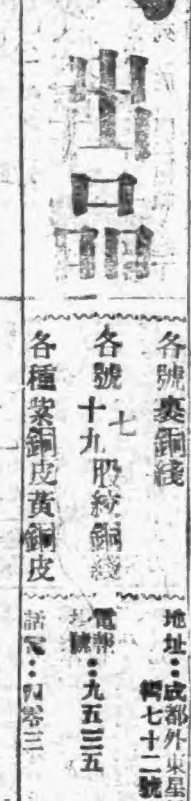 出品
各號裹銅綫
各號 七 十九 股絞銅綫
各種紫銅皮黃銅皮
地址：成都外東星
七十二號
電報 號：九五三五
話：四零三